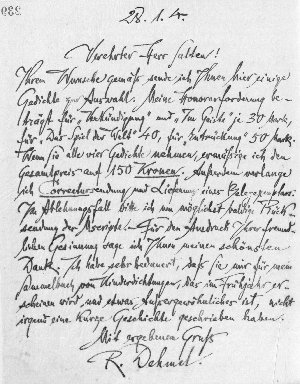 399
28.1.
Verehrter Herr Salten!
Ihrem Wunsche gemäß sende ich Ihnen hier einige
Gedichte zur Auswahl. Meine Honorarforderung be-
trägt für „Verkündigung" und „Im Geiste" je 30 Mark,
für „Das Spiel der Welt" 40, für „Entrückung" 50 Mark.
Wenn Sie alle vier Gedichte nehmen, ermäßige ich den
Gesamtpreis auf 150 Kronen. Außerdem verlange
ich Correctursendung und Lieferung eines Belegexemplars.
Im Ablehnungsfall bitte ich um möglichst baldige Rück-
sendung der Mscripte. Für den Ausdruck Ihrer freund-
lichen Gesinnung sage ich Ihnen meinen schönsten
Dank. Ich habe sehr bedauert, daß Sie mir für mein
Sammelbuch von Kinderdichtungen, das im Frühjahr er-
scheinen wird und etwas Außergewöhnliches ist, nicht
irgend eine kurze Geschichte geschrieben haben.
Mit ergebenem Gruß
R. Dehmel.